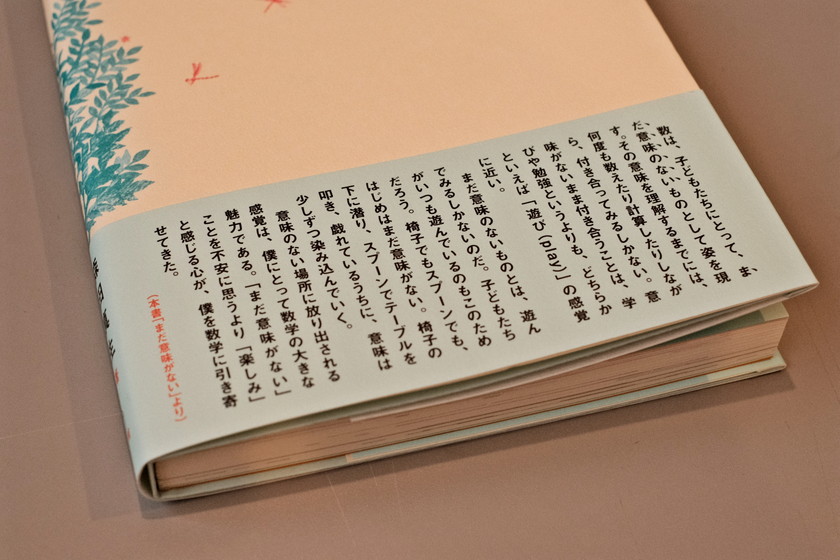 数は、子どもたちにとって、ま
だ、意味の、ないものとして姿を現
す。その意味を理解するまでには、
何度も数えたり計算したりしなが
ら、付き合ってみるしかない。意
味がないまま付き合うことは、学
びや勉強というよりも、どちらか
といえば「遊び(play)」の感覚
に近い。
まだ意味のないものとは、遊ん
でみるしかないのだ。子どもたち
がいつも遊んでいるのもこのため
だろう。椅子でもスプーンでも、
はじめはまだ意味がない。椅子の
下に潜り、スプーンでテーブルを
叩き、戯れているうちに、意味は
少しずつ染み込んでいく。
意味のない場所に放り出される
感覚は、僕にとって数学の大きな
魅力である。「まだ意味がない」
ことを不安に思うより「楽しみ」
と感じる心が、僕を数学に引き寄
せてきた。
(本書「まだ意味がない」より)